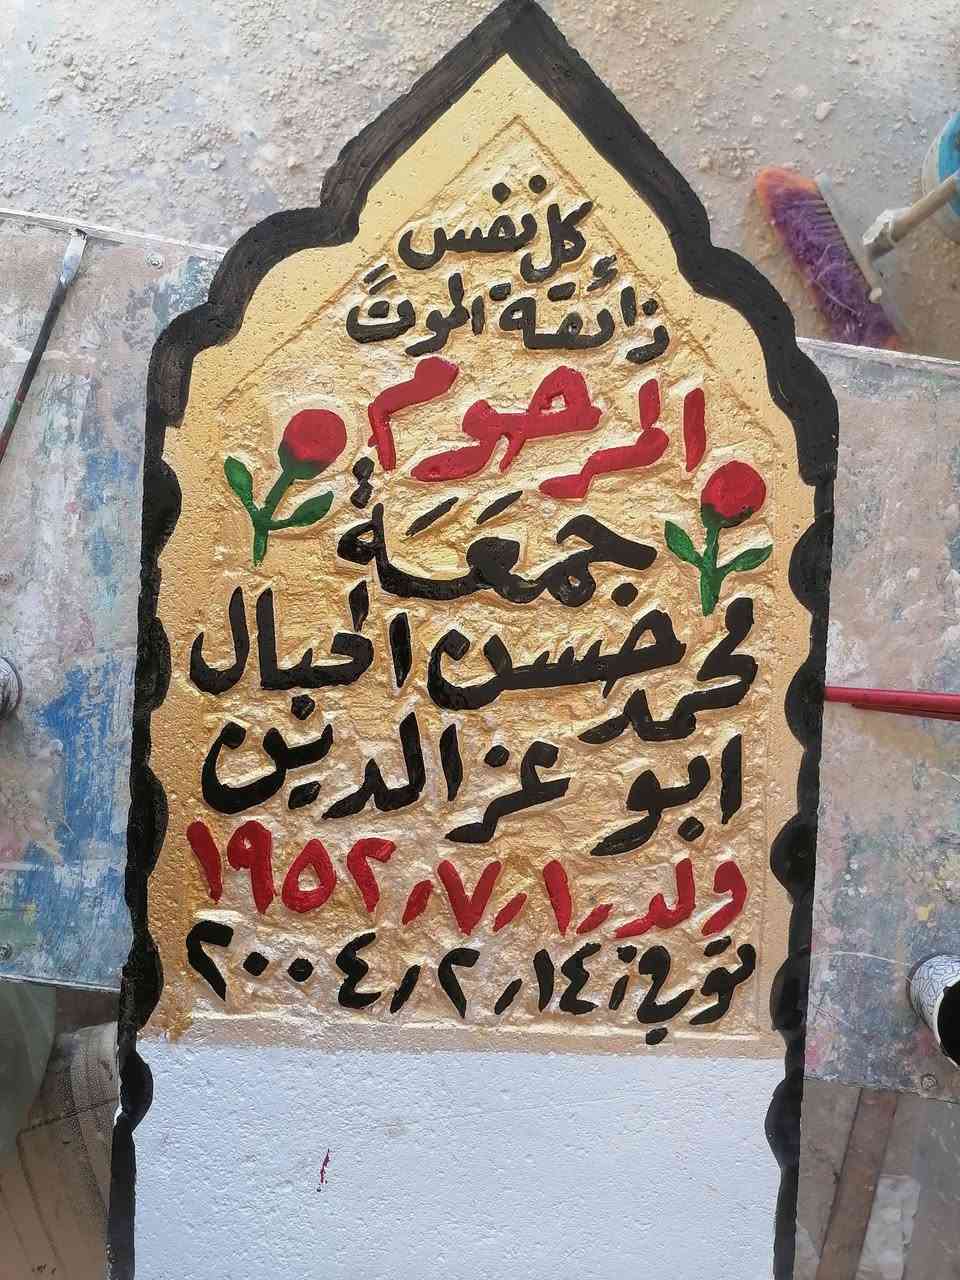 كل نفس
ذائقة الموت
المرحوم
جمعة
محمد حسن الحبال
ابو عز الدين
ولد ١٫٧٫١٩٥٢
توفي ١٤٫٢٫٢٠٠٤